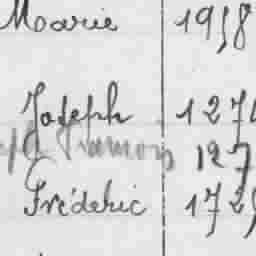 Marie 1918
Joseph 127
Simon 127
Frédéric 172